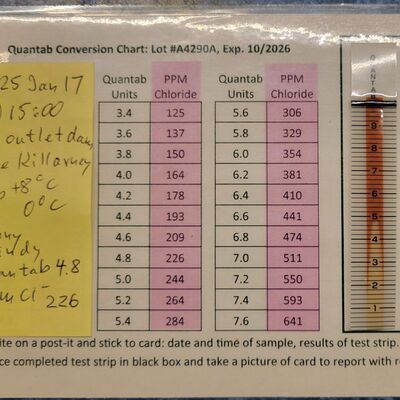 Quantab Conversion Chart: Lot #A4290A, Exp. 10/2026
25 Jan 17
15:00
outlet dam
Killarney
+8°C
0°C
4.8
Cl⁻
226
Quantab Units PPM Chloride Quantab Units PPM Chloride
3.4 125 5.6 306
3.6 137 5.8 329
3.8 150 6.0 354
4.0 164 6.2 381
4.2 178 6.4 410
4.4 193 6.6 441
4.6 209 6.8 474
4.8 226 7.0 511
5.0 244 7.2 550
5.2 264 7.4 593
5.4 284 7.6 641
QUANTAB
9
8
7
6
5
4
3
2
1
ite on a post-it and stick to card: date and time of sample, results of test strip.
ce completed test strip in black box and take a picture of card to report with r